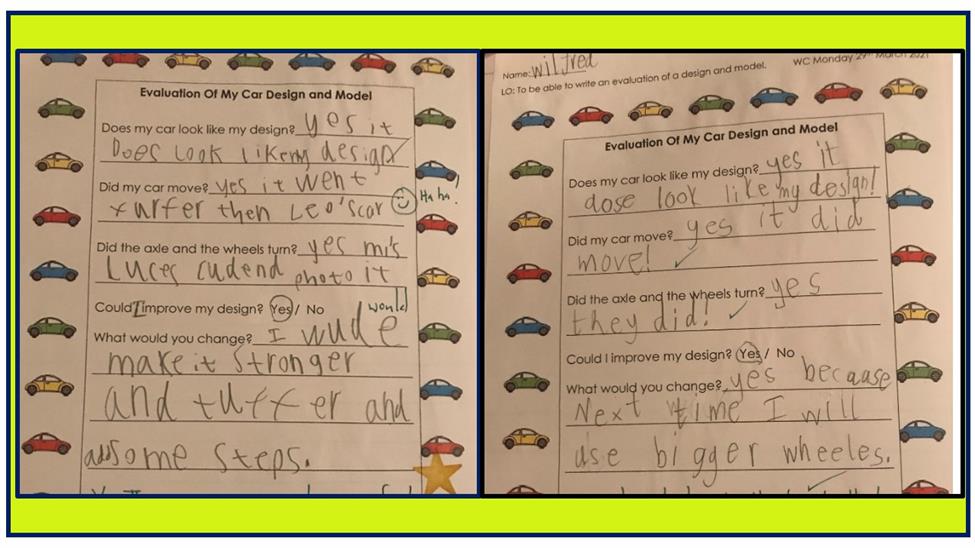 Evaluation Of My Car Design and Model
Does my car look like my design? yes it
Does look like my design
Did my car move? yes it went
furfer then Leo'scar Ha ha!
Did the axle and the wheels turn? yes mis
Luces cudend photo it
Could I improve my design? Yes / No
would
What would you change? I wude
make it stronger
and tuffer and
add some steps.
Name: wilfred
WC Monday 29th March 2021
LO: To be able to write an evaluation of a design and model.
Evaluation Of My Car Design and Model
Does my car look like my design? yes it
dose look like my design!
Did my car move? yes it did
move!
Did the axle and the wheels turn? yes
they did!
Could I improve my design? Yes / No
What would you change? yes because
Next time I will
use bigger wheeles.